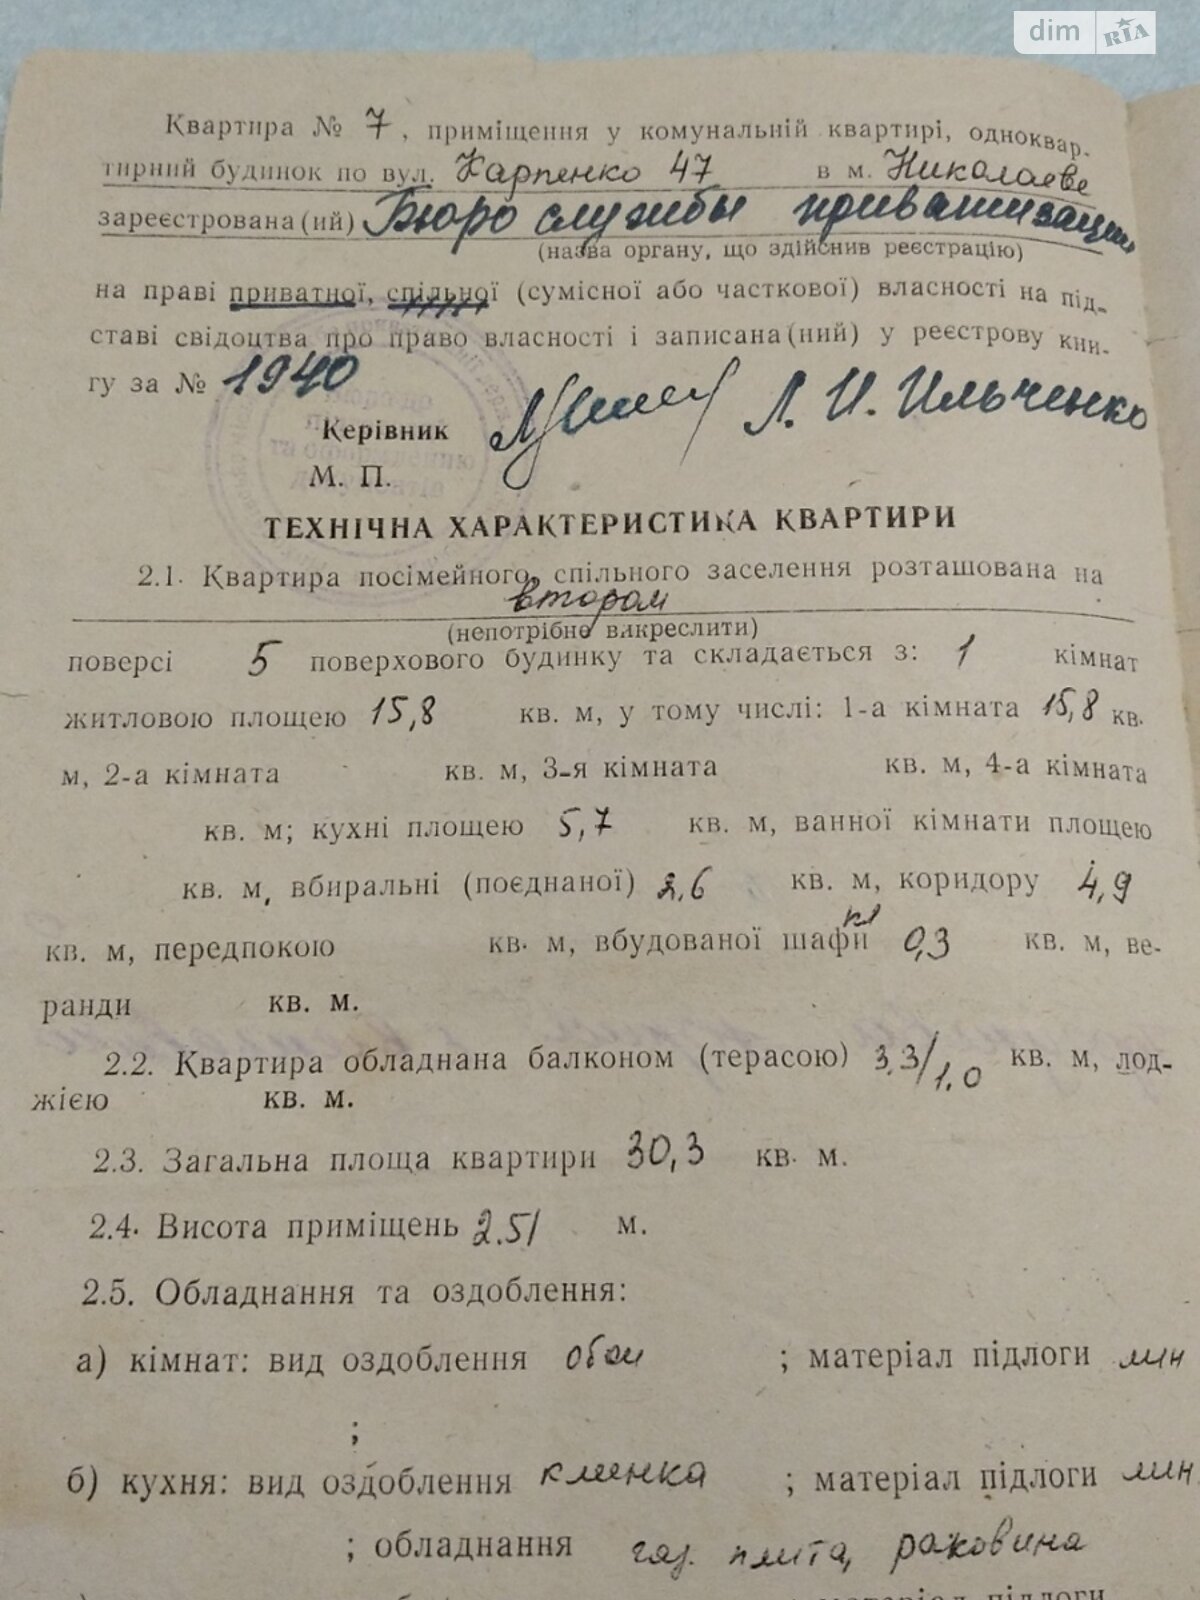 dim RIA
Квартира № 7, приміщення у комунальній квартирі, одноквар-
тирний будинок по вул. Карпенко 47 в м. Николаеве
зареєстрована (ий) Бюро службы приватизации
(назва органу, що здійснив реєстрацію)
на праві приватної, спільної (сумісної або часткової) власності на під-
ставі свідоцтва про право власності і записана (ний) у реєстрову кни-
гу за № 1940
Керівник Л. И. Ильченко
М. П.
ТЕХНІЧНА ХАРАКТЕРИСТИКА КВАРТИРИ
2.1. Квартира посімейного, спільного заселення розташована на
втором
(непотрібне викреслити)
поверсі 5 поверхового будинку та складається з: 1 кімнат
житловою площею 15,8 кв. м, у тому числі: 1-а кімната 15,8 кв.
м, 2-а кімната кв. м, 3-я кімната кв. м, 4-а кімната
кв. м; кухні площею 5,7 кв. м, ванної кімнати площею
кв. м, вбиральні (поєднаної) 2,6 кв. м, коридору 4,9
кл
кв. м, передпокою кв. м, вбудованої шафи 0,3 кв. м, ве-
ранди кв. м.
2.2. Квартира обладнана балконом (терасою) 3.3/1.0 кв. м, лод-
жією кв. м.
2.3. Загальна площа квартири 30,3 кв. м.
2.4. Висота приміщень 2.51 м.
2.5. Обладнання та оздоблення:
а) кімнат: вид оздоблення обои ; матеріал підлоги лин
;
б) кухня: вид оздоблення клеенка ; матеріал підлоги лин.
; обладнання газ. плита, раковина
матеріал підлоги